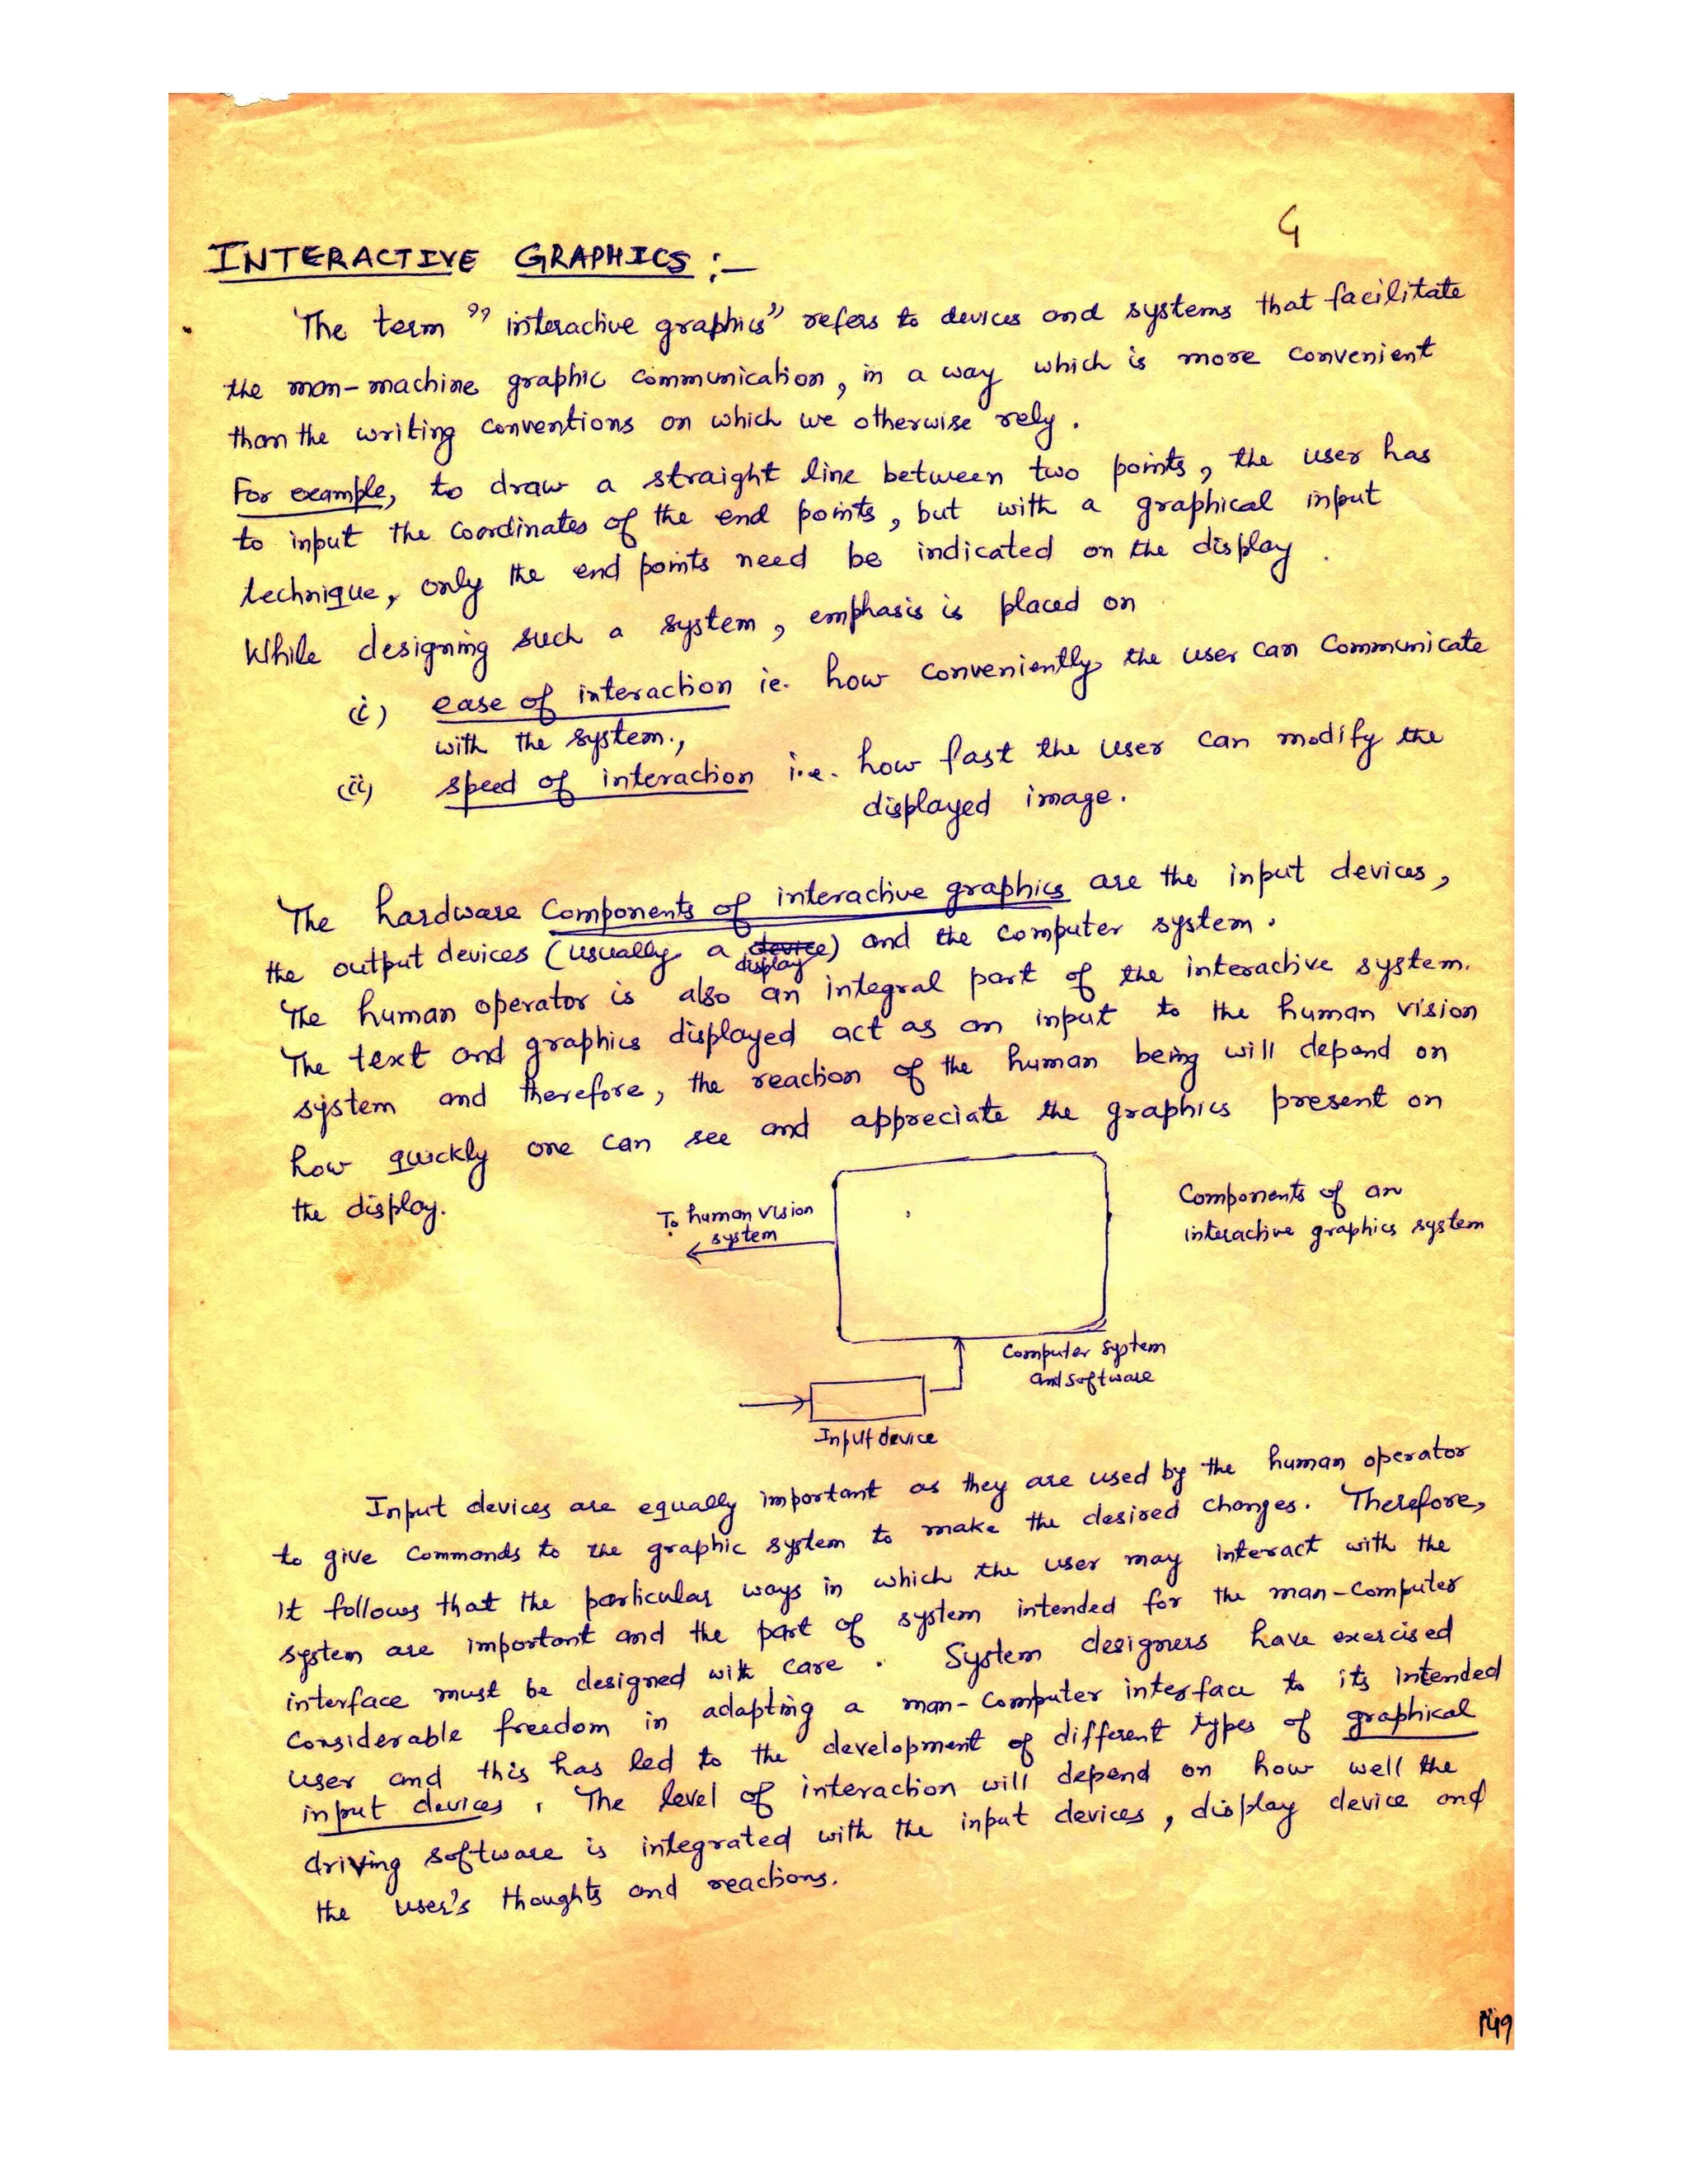 G
INTERACTIVE GRAPHICS :-
The term "interactive graphics" refers to devices and systems that facilitate
the man-machine graphic communication, in a way which is more convenient
than the writing conventions on which we otherwise rely.
For example, to draw a straight line between two points, the user has
to input the coordinates of the end points, but with a graphical input
technique, only the end points need be indicated on the display.
While designing such a system, emphasis is placed on
(i) ease of interaction ie. how conveniently the user can communicate
with the system.,
(ii) speed of interaction i.e. how fast the user can modify the
displayed image.
The hardware components of interactive graphics are the input devices,
the output devices (usually a device) and the computer system.
display
The human operator is also an integral part of the interactive system.
The text and graphics displayed act as an input to the human vision
system and therefore, the reaction of the human being will depend on
how quickly one can see and appreciate the graphics present on
the display.
To human vision
system
Components of an
interactive graphics system
Computer system
and software
Input device
Input devices are equally important as they are used by the human operator
to give commands to the graphic system to make the desired changes. Therefore,
it follows that the particular ways in which the user may interact with the
system are important and the part of system intended for the man-computer
interface must be designed with care. System designers have exercised
considerable freedom in adapting a man-computer interface to its intended
user and this has led to the development of different types of graphical
input devices. The level of interaction will depend on how well the
driving software is integrated with the input devices, display device and
the user's thoughts and reactions.